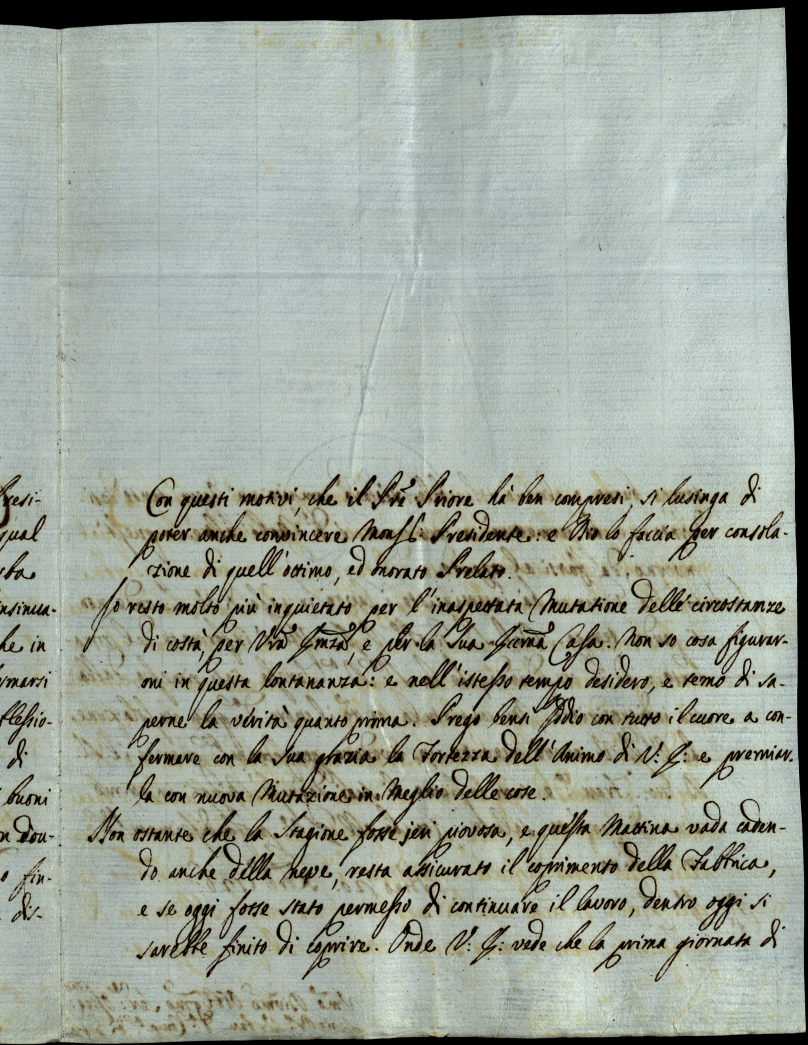 Con questi motivi, che il Pre Priore hà ben compresi, si lusinga di
poter anche convincere Monsr. Presidente: e Dio lo faccia per consola-
zione di quell'ottimo, ed onorato Prelato.
Io resto molto più inquietato per l'inaspettata Mutatione delle circostanze
di costà, per Vra e per la Sua Casa. Non so cosa figurar-
mi in questa lontananza: e nell'istesso tempo desidero, e temo di sa-
perne la verità quanto prima. Prego bensì Iddio con tutto il cuore a con-
fermare con la sua grazia la Fortezza dell'Animo di V: E: e premiar-
la con nuova Mutazione in Meglio delle cose.
Non ostante che la Stagione fosse jeri piovosa, e questa Mattina vada caden-
do anche della neve, resta assicurato il coprimento della Fabbrica,
e se oggi fosse stato permesso di continuare il lavoro, dentro oggi si
sarebbe finito di coprire. Onde V: E: vede che la prima giornata di
Presi-
qual
insinua-
he in
rmarsi
flessio-
di
buoni
n dou-
o fin-
dis-